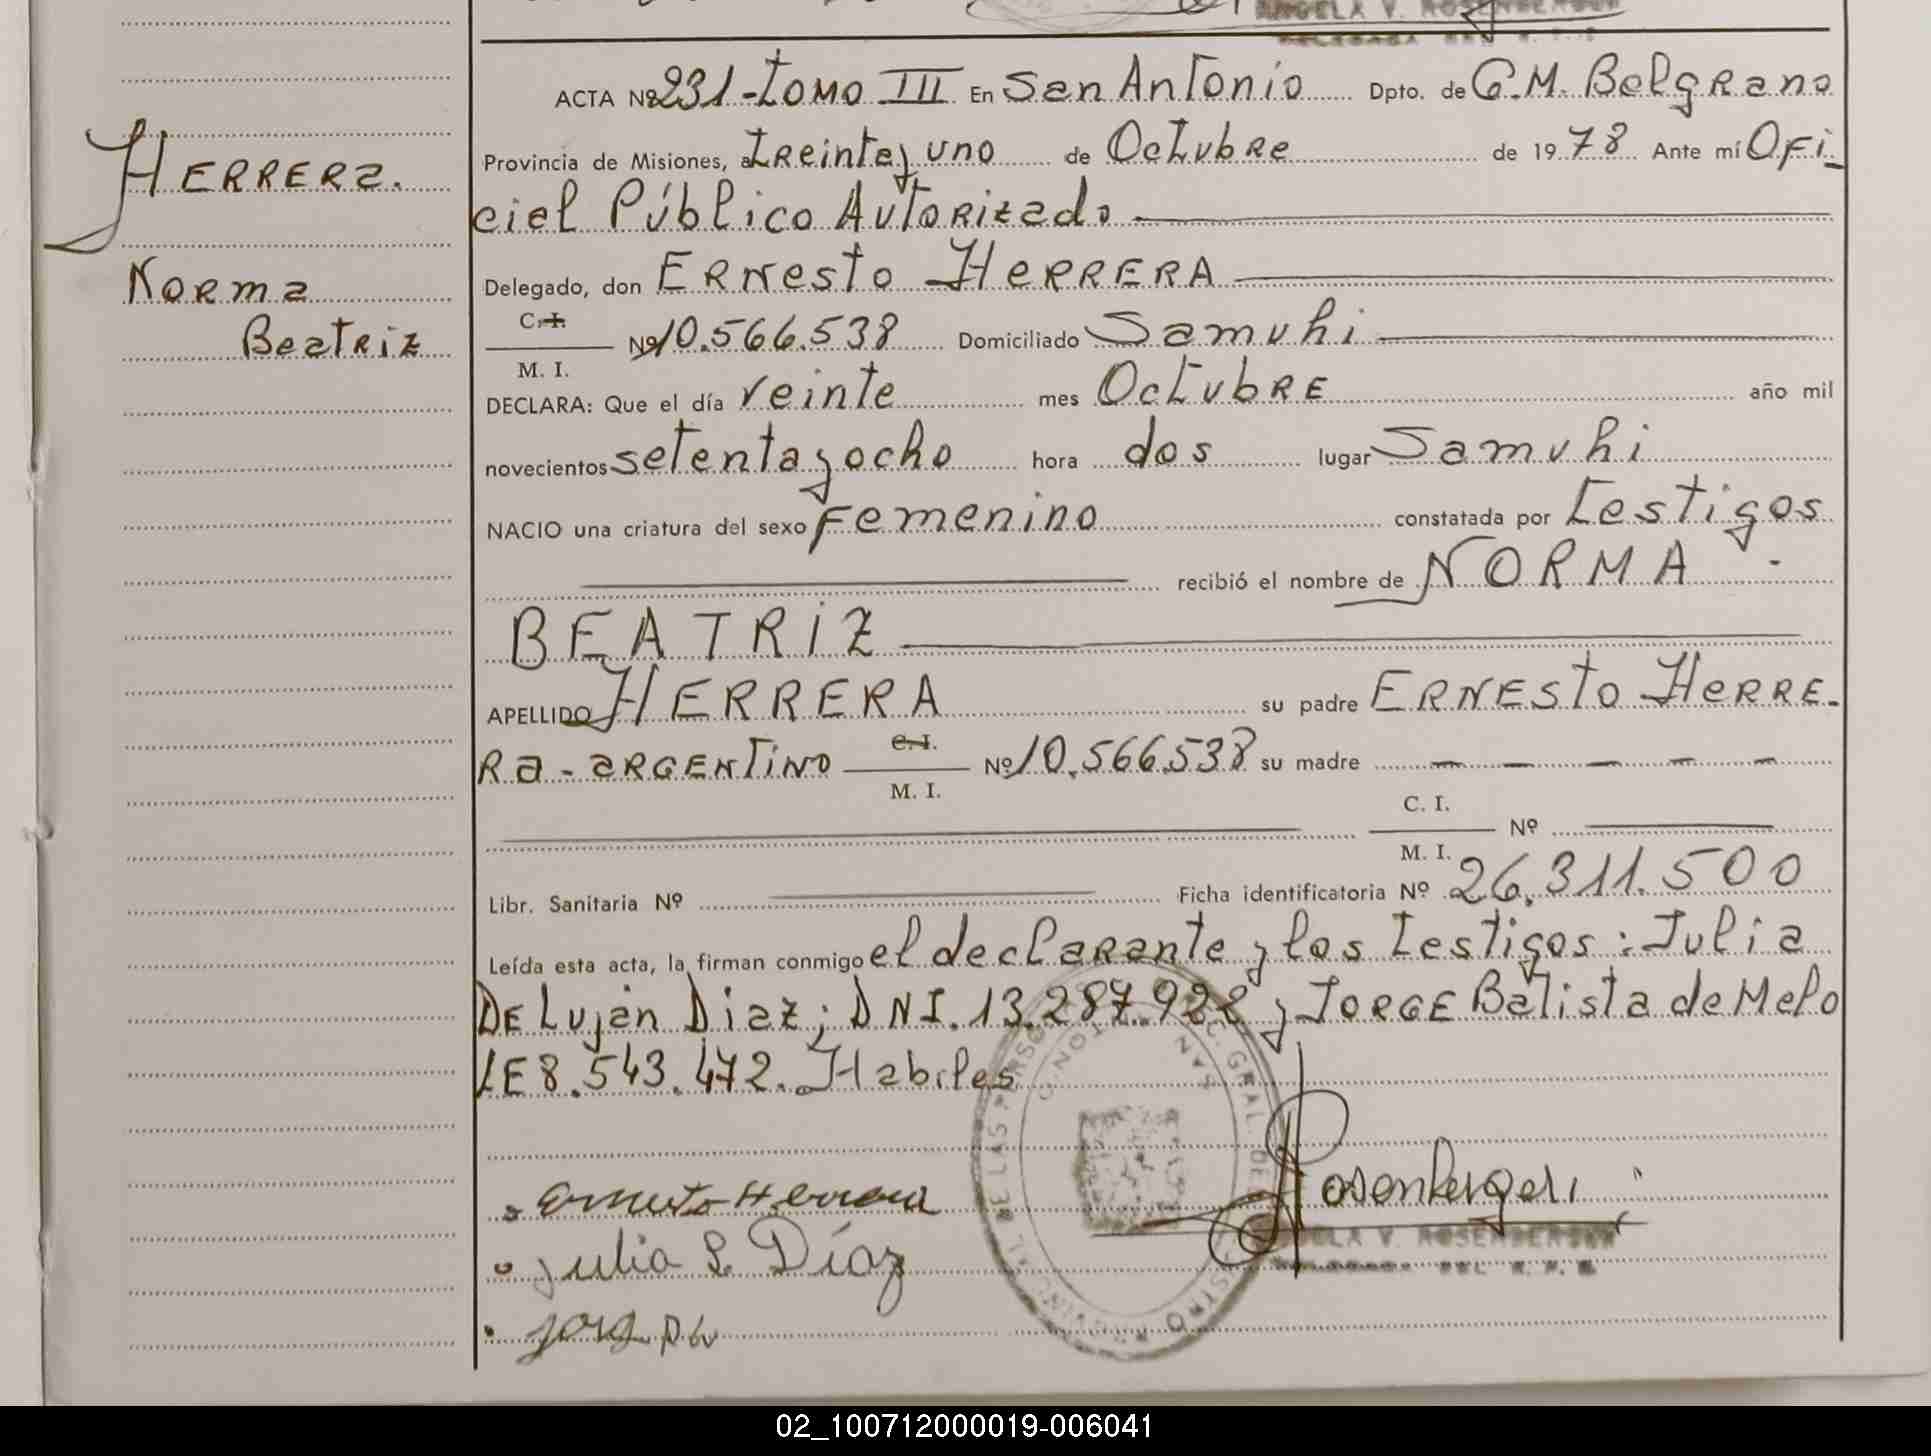 ANGELA V. ROSENBERGER
ACTA Nº 231-Tomo III En San Antonio Dpto. de G.M. Belgrano
Provincia de Misiones, a Treinta y uno de Octubre de 1978 Ante mí Ofi-
cial Público Autorizado
Delegado, don Ernesto HERRERA
C. I.
M. I. Nº 10.566.538 Domiciliado Samuhi
DECLARA: Que el día veinte mes Octubre año mil
novecientos setenta y ocho hora dos lugar Samuhi
NACIO una criatura del sexo Femenino constatada por Testigos
recibió el nombre de NORMA -
BEATRIZ
APELLIDO HERRERA su padre ERNESTO HERRE-
Ra - argentino C. I. M. I. Nº 10.566.538 su madre - - - - -
C. I.
M. I. Nº
Libr. Sanitaria Nº Ficha identificatoria Nº 26.311.500
Leída esta acta, la firman conmigo el declarante y los Testigos: Julia
De Luján Diaz; DNI. 13.287.922 y JORGE Batista de Melo
LE 8.543.472. Habiles
Ernesto Herrera
Julia L. Díaz
Rosenberger
ANGELA V. ROSENBERGER
HERRERa.
Norma
Beatriz
02_100712000019-006041